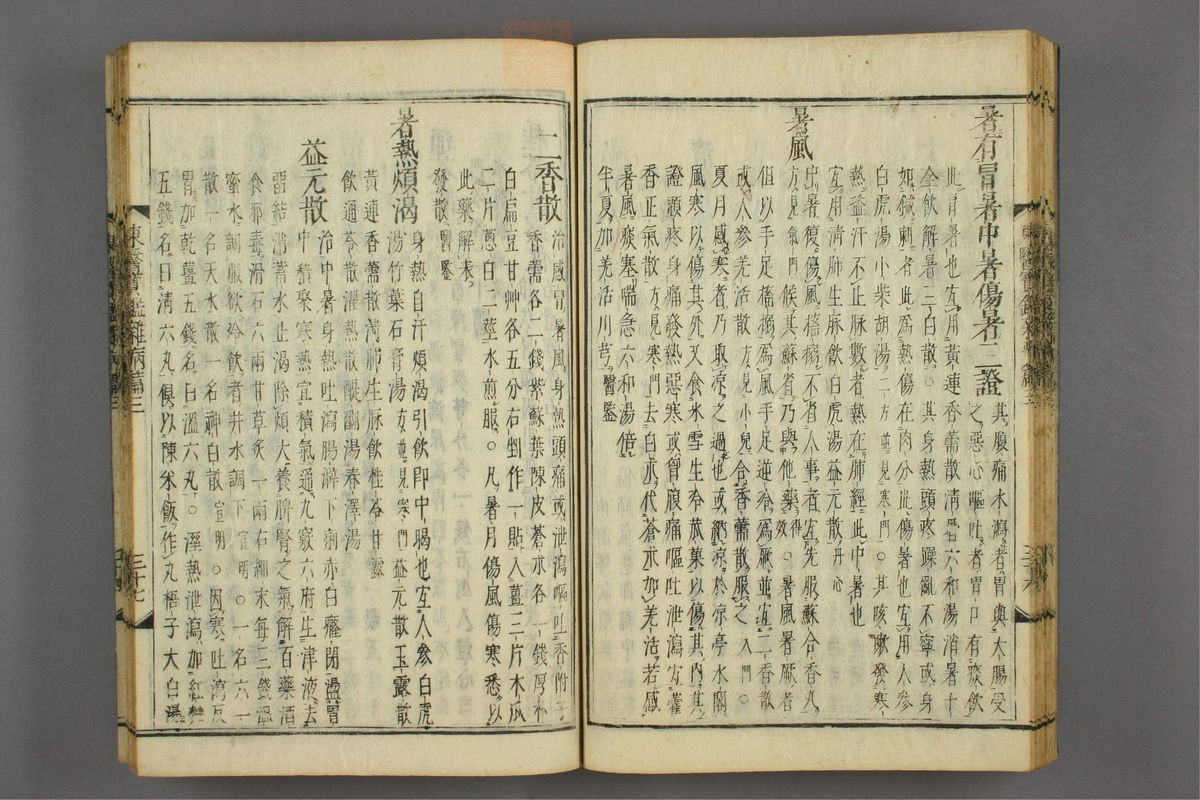 暑有冒暑中暑傷暑三證
其腹痛水瀉者胃與大腸受
之惡心嘔吐者胃口有痰飲
此冒暑也宜用黃連香薷散清暑六和湯消暑十
全飲解暑三白散○其身熱頭疼躁亂不寧或身
如鍼刺者此爲熱傷在肉分此傷暑也宜用人參
白虎湯小柴胡湯二方並見寒門○其咳嗽發寒
熱盜汗不止脉數者熱在肺經此中暑也
宜用淸肺生脉飲白虎湯益元散丹心
暑風
中暑復傷風搐搦不省人事者宜先服蘇合香丸
方見氣門候其蘇省乃與他藥得效○暑風暑厥者
但以手足搐搦爲風手足逆冷爲厥並宜二香散
或人參羌活散方見小兒合香薷散服之入門○
夏月感寒者乃取凉之過也或納凉於凉亭水閣
風寒以傷其外又食氷雪生冷苽菓以傷其內其
證頭疼身痛發熱惡寒或胷腹痛嘔吐泄瀉宜藿
香正氣散方見寒門去白朮代蒼朮加羌活若感
暑風痰塞喘急六和湯倍
半夏加羌活川芎醫鑒
二香散
治感冒暑風身熱頭痛或泄瀉嘔吐香附子
香薷各二錢紫蘇葉陳皮蒼朮各一錢厚朴
白扁豆甘艸各五分右剉作一貼入薑三片木瓜
二片葱白二莖水煎服○凡暑月傷風傷寒悉以
此藥解表
發散醫鑒
暑熱煩渴
身熱自汗煩渴引飲卽中暍也宜人參白虎
湯竹葉石膏湯方並見寒門益元散玉露散
黃連香薷散淸肺生脉飲桂苓甘露
飲通苓散濯熱散醍醐湯春澤湯
益元散
治中暑身熱吐瀉腸澼下痢赤白癃閉盪胃
中積聚寒熱宣積氣通九竅六府生津液去
留結消蓄水止渴除煩大養脾腎之氣解百藥酒
食邪毒滑石六兩甘草炙一兩右細末每三錢溫
蜜水調服欲冷飲者井水調下宣明○一名六一
散一名天水散一名神白散宣明○因寒吐瀉反
胃加乾薑五錢名曰溫六丸○濕熱泄瀉加紅麴
五錢名曰淸六丸俱以陳米飯作丸梧子大白湯